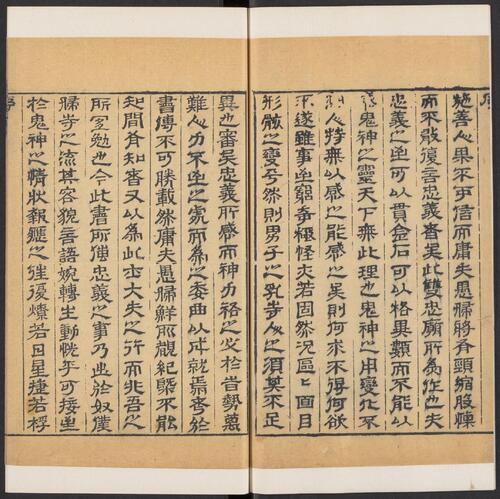 序
施善人果不可信而庸夫愚婦將脊頭縮股慄
而不敢復言忠義者矣此雙忠廟所為作也夫
忠義之至可以貫金石可以格異類而不能以
鬼神之靈天下無此理也鬼神之用變化不
人特無以感之能感之矣則何求不得何欲
不遂雖事至窮奇極怪夫若固然況區區面目
形骸之變乎然則男子之乳寺人之須莫不足
異也審矣忠義所感而神力格之必於當勢萬
難人力不至之處而為之委曲以成就焉考於
書傳不可勝載然庸夫愚婦鮮觀紀槩不能
知間有知者又以為此士大夫之行而非吾之
所宜勉也今此書所傳忠義之事乃出於奴僕
婦寺之流其容貌言語婉轉生動恍乎可接至
於鬼神之情狀報應之往復爍若日星捷若桴
序